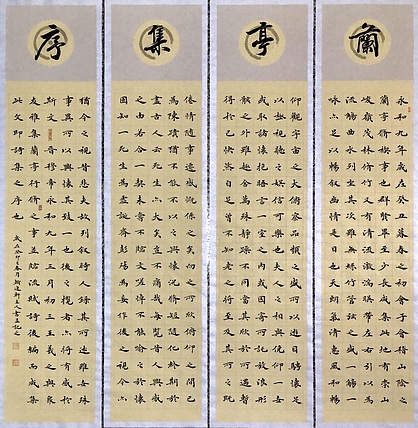 蘭
永和九年歲在癸丑暮春之初會于會稽山陰之
蘭亭脩禊事也群賢畢至少長咸集此地有崇山
峻嶺茂林脩竹又有清流激湍暎帶左右引以為
流觴曲水列坐其次雖無絲竹管弦之盛一觴一
詠亦足以暢敘幽情是日也天朗氣清惠風和暢
亭
仰觀宇宙之大俯察品類之盛所以遊目騁懷足
以極視聽之娛信可樂也夫人之相與俯仰一世
或取諸懷抱晤言一室之內或因寄所託放浪形
骸之外雖趣舍萬殊靜躁不同當其欣於所遇暫
得於己快然自足曾不知老之將至及其所之既
集
倦情隨事遷感慨係之矣向之所欣俯仰之間已
為陳跡猶不能不以之興懷況脩短隨化終期於
盡古人云死生亦大矣豈不痛哉每覽昔人興感
之由若合一契未嘗不臨文嗟悼不能喻之於懷
固知一死生為虛誕齊彭殤為妄作後之視今亦
序
猶今之視昔悲夫故列敘時人錄其所述雖世殊
事異所以興懷其致一也後之攬者亦將有感於
斯文 晉穆帝永和九年三月初三王羲之與眾
友雅集蘭亭行脩禊之事並臨流賦詩後編而成集
此文即詩集之序也